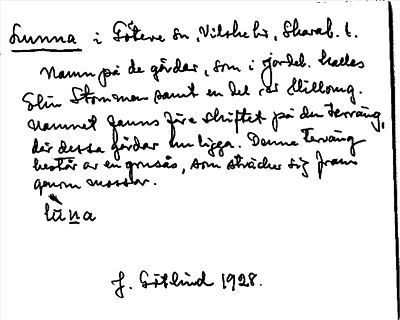 Lunna i Götene sn, Vilske hd, Skarab. l.
Namn på de gårdar, som i jordeb. kallas
Elin Stommen samt en del av Stillomg.
Namnet fanns före skiftet på den terräng,
där dessa gårdar nu ligga. Denna terräng
består av en grusås, som sträcker sig fram
genom mossar.
lu̅na
J. Götlind 1928.